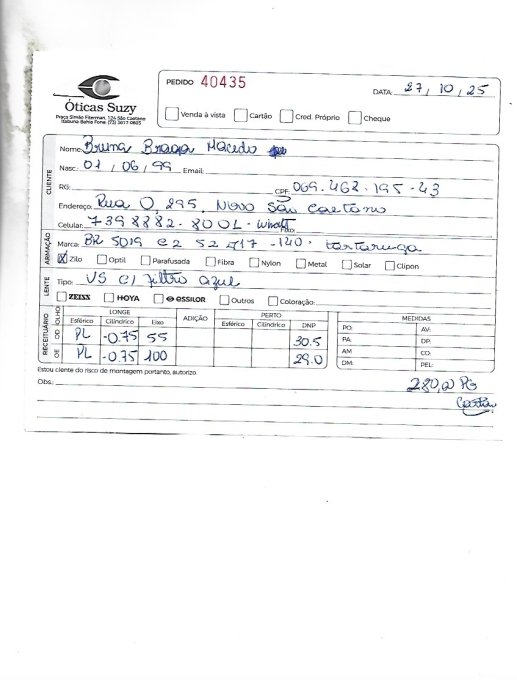 Óticas Suzy
Praça Simão Fiterman, 124 São Caetano
Itabuna Bahia Fone: (73) 3617-0805
PEDIDO 40435
DATA: 27, 10, 25
Venda à vista Cartão Cred. Próprio Cheque
CLIENTE
Nome: Bruna Braga Macedo
Nasc.: 01, 06, 99 Email:
RG: CPF: 069.462.195-43
Endereço: Rua O, 295, Novo São Caetano
Celular: 7398882-8001-
ARMAÇÃO
Marca: BR 5019 C2 52 17-140. tartaruga
X Zilo Optil Parafusada Fibra Nylon Metal Solar Clipon
LENTE
Tipo: VS C/ filtro azul
ZEISS HOYA essilor Outros Coloração:
RECEITUÁRIO
OLHO LONGE ADIÇÃO PERTO MEDIDAS
Esférico Cilíndrico Eixo Esférico Cilíndrico DNP PO: AV:
OD PL -0.75 55 30.5 PA: DP:
OE PL -0.75 100 29.0 AM CO:
DM: PEL:
Estou ciente do risco de montagem portanto, autorizo.
Obs.: 280,00 PG
Cartão